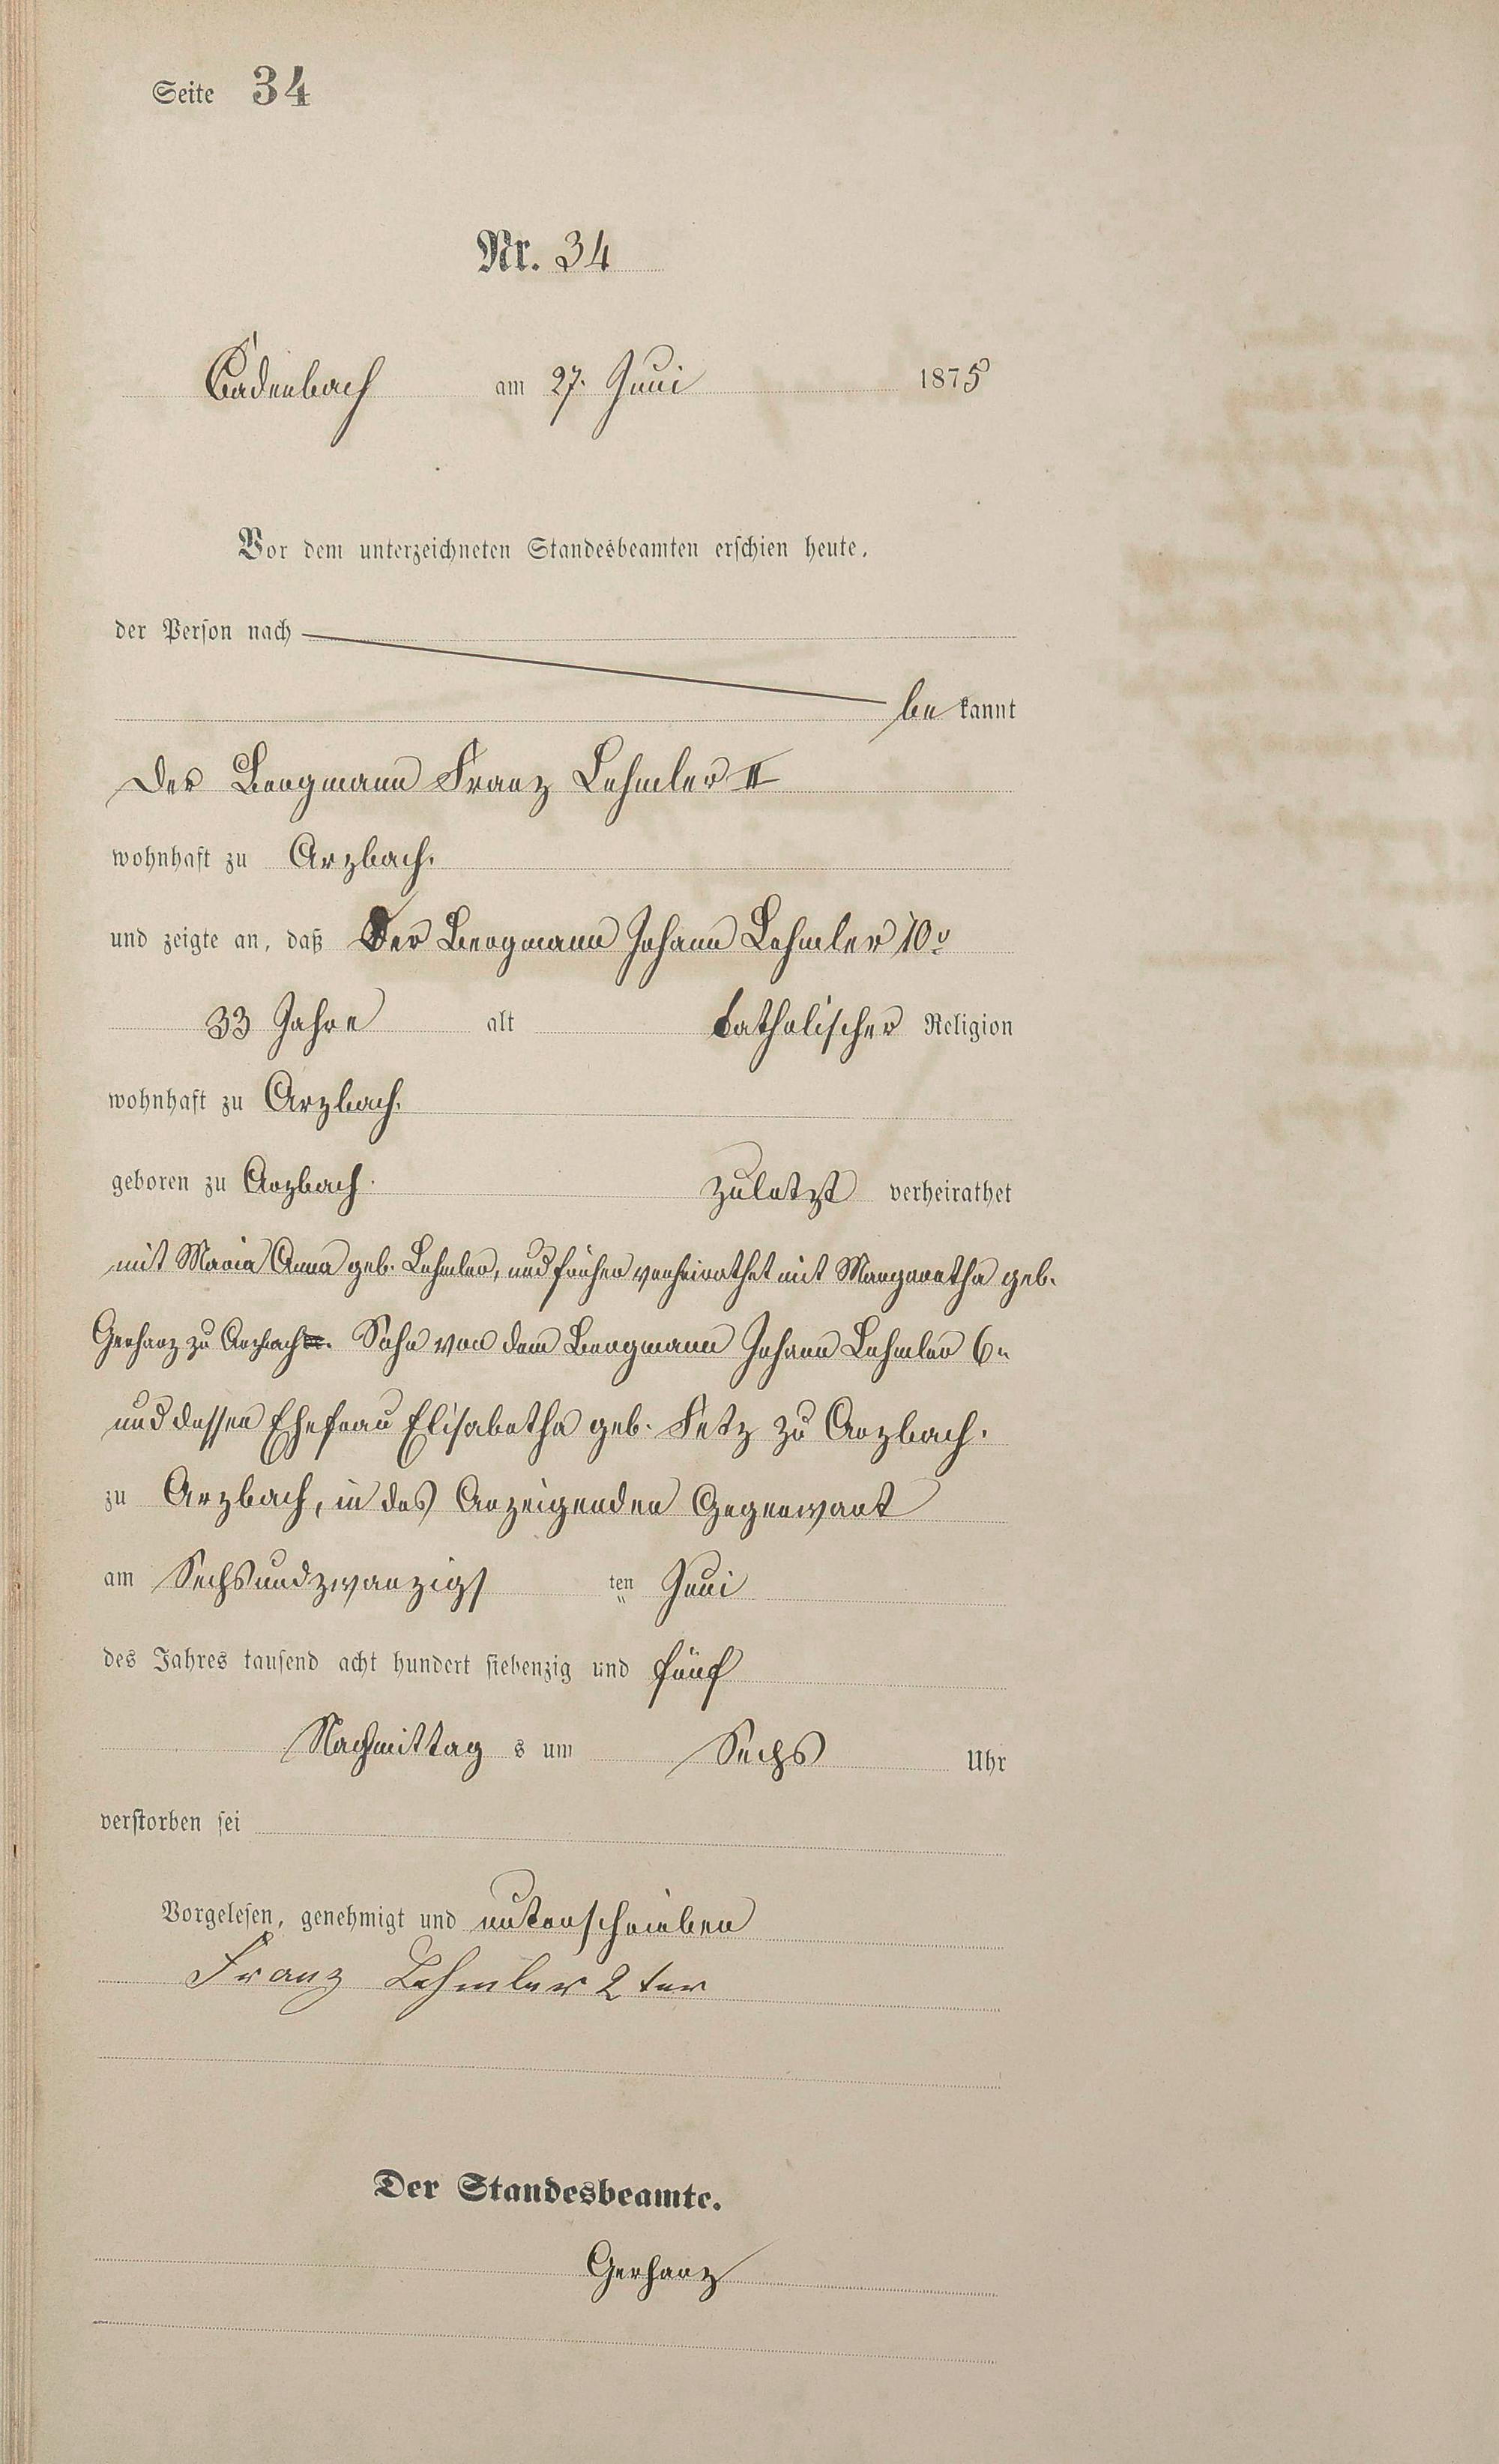 Seite 34
Nr. 34
Cadenbach am 27. Juni 1875
Vor dem unterzeichneten Standesbeamten erschien heute,
der Person nach
be kannt
Der Bergmann Franz Lehmler II
wohnhaft zu Arzbach.
und zeigte an, daß Der Bergmann Johann Lehmler 10r
33 Jahre alt katholischer Religion
wohnhaft zu Arzbach.
geboren zu Arzbach. zuletzt verheirathet
mit Maria Anna geb. Lehmler, und früher verheirathet mit Margaretha geb.
Gerharz zu Arzbach. Sohn von dem Bergmann Johann Lehmler 6r
und dessen Ehefrau Elisabetha geb. Fetz zu Arzbach.
zu Arzbach, in des Anzeigenden Gegenwart
am Sechsundzwanzigs ten Juni
des Jahres tausend acht hundert siebenzig und fünf
Nachmittag s um Sechs Uhr
verstorben sei
Vorgelesen, genehmigt und unterschrieben
Franz Lehmler 2 ter
Der Standesbeamte.
Gerharz